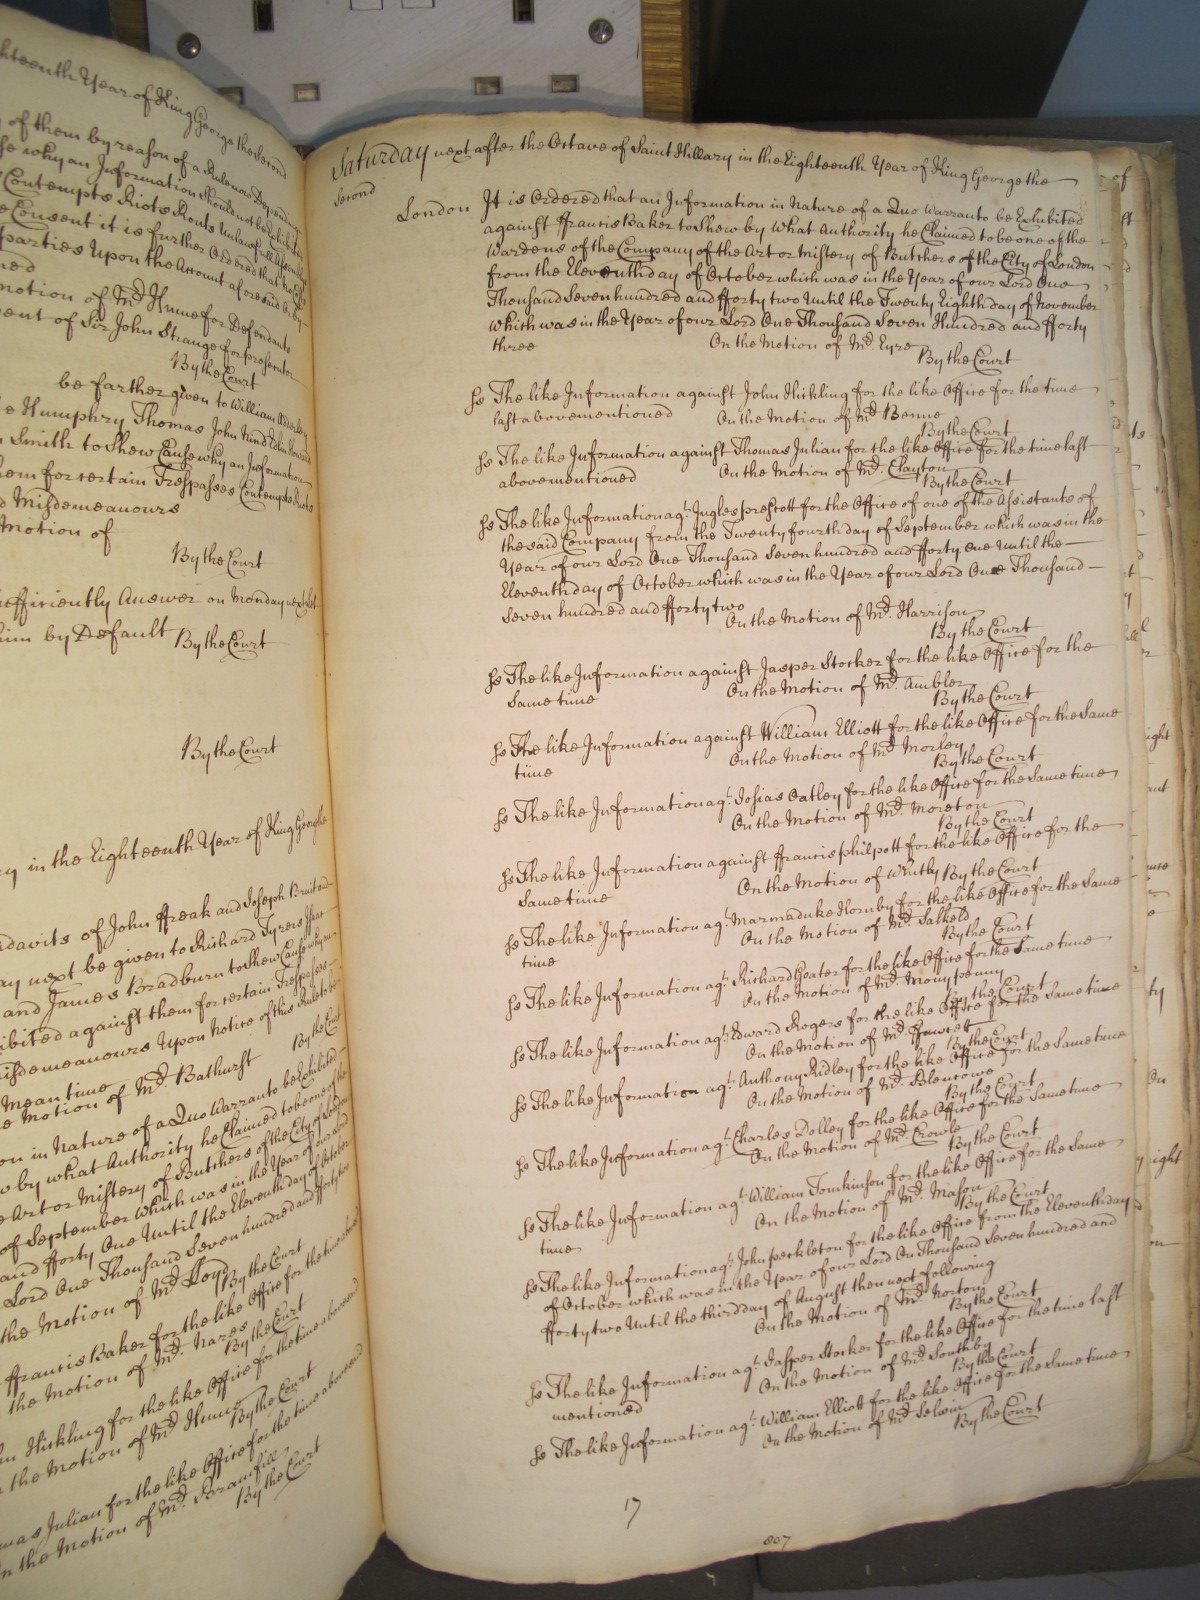 hteenth Year of King George the Second
of them by reason of a Rule now Depending
why an Information Should not be Exhibited
Contempts Riots Routs Unlawfull Assemblys
Consent it is further Ordered that the
parties Upon the Amount aforesaid
ned
motion of Mr. Hume for Defendants
ent of Sir John Strange for prosecutor
By the Court
be farther given to William
Humphry Thomas John
Smith to Shew Cause why an Information
hem for certain Trespasses Contempts Riots
d Misdemeanours
Motion of
By the Court
ufficiently Answer on Monday next
him by Default By the Court
By the Court
ry in the Eighteenth Year of King George the
idavits of John ffreak and Joseph
ay next be given to Richard Tyres
and James Bradburn to Shew Cause why an
ibited against them for certain Trespasses
isdemeanours Upon Notice of this Rule to be
mean time By the Court
e Motion of Mr. Bathurst
on in Nature of a Quo Warranto be Exhibited
w by what Authority he Claimed to be one of the
e Art or Mistery of Butchers of the City of London
of September which was in the Year of our Lord
and fforty One Until the Eleventh day of October
Lord One Thousand Seven hundred and fforty two
the Motion of Mr. Lloyd
By the Court
ffrancis Baker for the like Office for the time
the Motion of Mr. Nares
By the Court
hn Hickling for the like Office for the time aforesaid
the Motion of Mr. Hume
By the Court
mas Julian for the like Office for the time abovesaid
n the Motion of Mr.
By the Court
Saturday next after the Octave of Saint Hillary in the Eighteenth Year of King George the
Second
London It is Ordered that an Information in Nature of a Quo Warranto be Exhibited
against ffrancis Baker to Shew by What Authority he Claimed to be one of the
Wardens of the Company of the Art or Mistery of Butchers of the City of London
from the Eleventh day of October which was in the Year of our Lord One
Thousand Seven hundred and fforty two Until the Twenty Eighth day of November
which was in the Year of our Lord One Thousand Seven Hundred and fforty
three On the Motion of Mr. Eyre
By the Court
ss The like Information against John Hickling for the like Office for the time
last abovementioned On the Motion of Mr. Benne
By the Court
ss The like Information against Thomas Julian for the like Office for the time last
abovementioned On the Motion of Mr. Clayton
By the Court
ss The like Information agt. Ingles prestott for the Office of one of the Assistants of
the said Company from the Twenty fourth day of September which was in the
Year of our Lord One Thousand Seven hundred and fforty one Until the
Eleventh day of October which was in the Year of our Lord One Thousand
Seven hundred and fforty two
On the Motion of Mr. Harrison
By the Court
ss The like Information against Jasper Storker for the like Office for the
Same time On the Motion of Mr. Ambler
By the Court
ss The like Information against William Elliott for the like Office for the Same
time On the Motion of Mr. Morley
By the Court
ss The like Information agt. Josias Oatley for the like Office for the Same time
On the Motion of Mr. Moreton
By the Court
ss The like Information against ffrancis philpott for the like Office for the
Same time On the Motion of By the Court
ss The like Information agt. Marmaduke Hornby for the like Office for the Same
time On the Motion of Mr. Salkeld
By the Court
ss The like Information agt. Richard Goater for the like Office for the Same time
On the Motion of Mr. Monypenny
By the Court
ss The like Information agt. Edward Rogers for the like Office for the Same time
On the Motion of Mr. ffawcett
By the Court
ss The like Information agt. Anthony Ridley for the like Office for the Same time
On the Motion of Mr. Blencowe
By the Court
ss The like Information agt. Charles Dolley for the like Office for the Same time
On the Motion of Mr. Crowle
By the Court
ss The like Information agt. William Tomkinson for the like Office for the Same
time On the Motion of Mr. Mason
By the Court
ss The like Information agt. John perkleton for the like Office from the Eleventh day
of October which was in the Year of our Lord On Thousand Seven hundred and
fforty two Until the third day of August then next following
On the Motion of Mr. Norton
By the Court
ss The like Information agt. Jasper Storker for the like Office for the time last
mentioned On the Motion of Mr. Southby
By the Court
ss The like Information agt. William Elliott for the like Office for the Same time
On the Motion of Mr. Selwin
By the Court
17
807